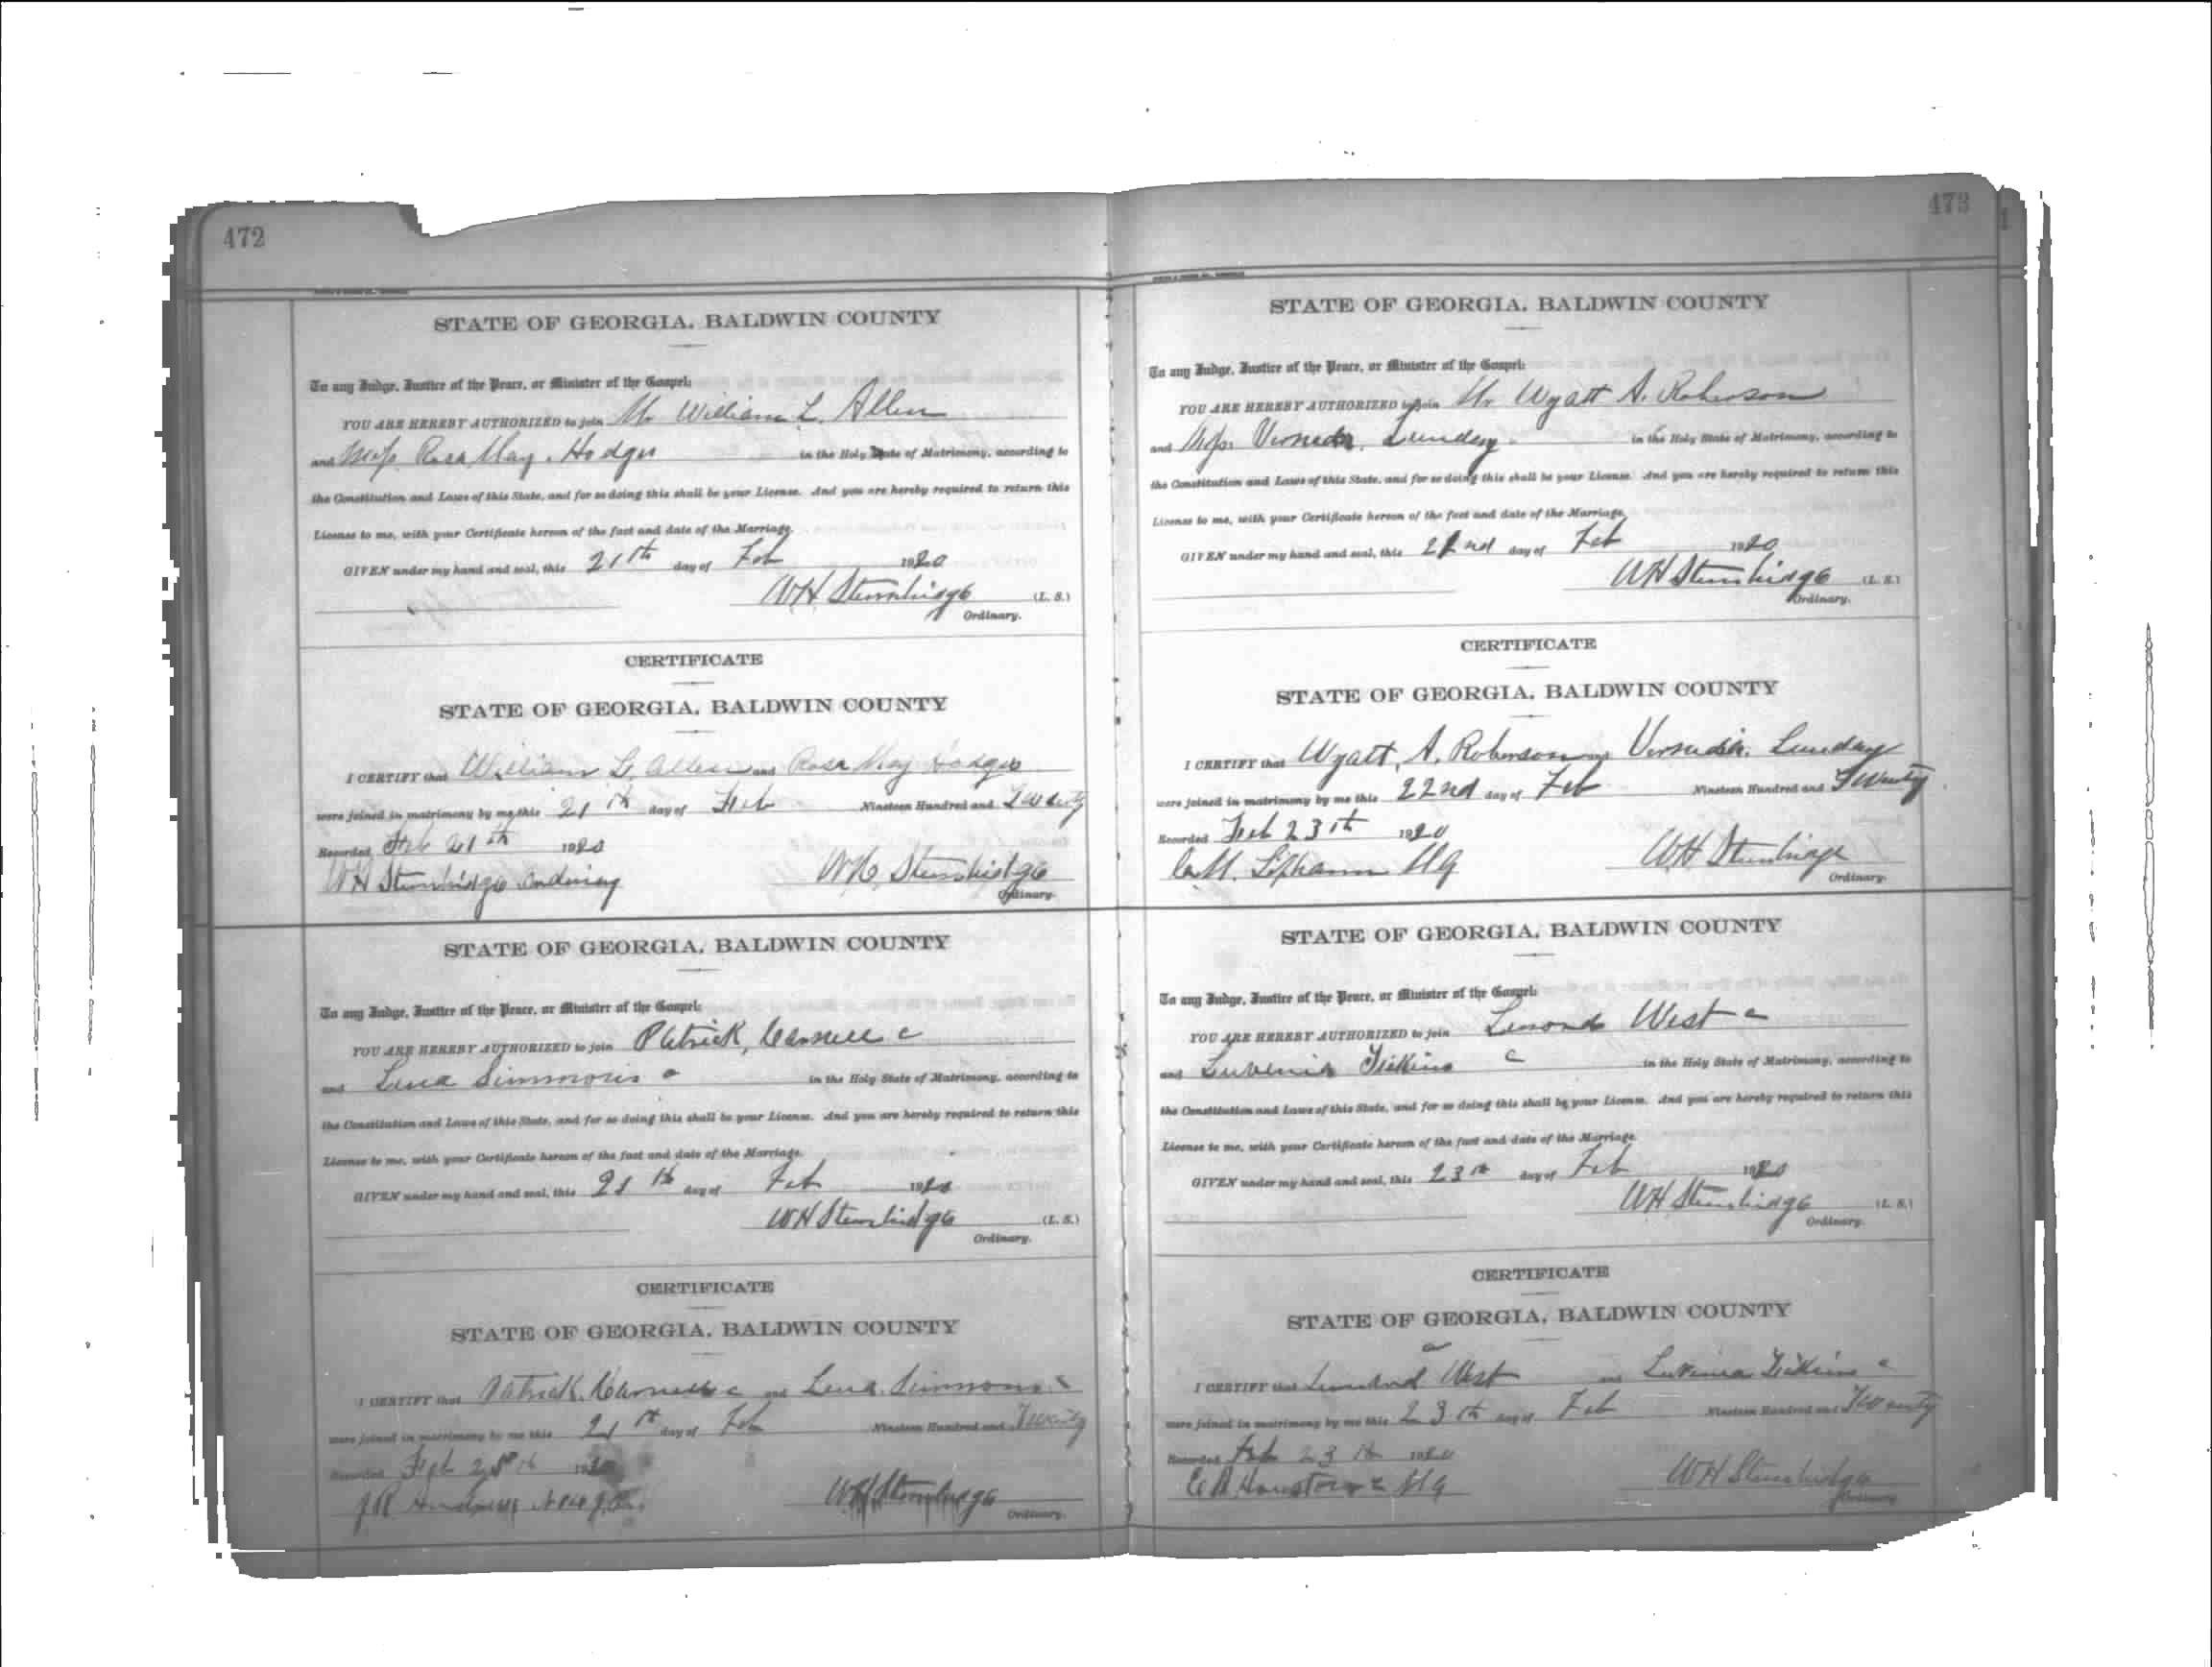 472
STATE OF GEORGIA, BALDWIN COUNTY
To any Judge, Justice of the Peace, or Minister of the Gospel:
YOU ARE HEREBY AUTHORIZED to join Mr William L. Allen
and Miss Rosa May Hodges in the Holy State of Matrimony, according to
the Constitution and Laws of this State, and for so doing this shall be your License. And you are hereby required to return this
License to me, with your Certificate hereon of the fact and date of the Marriage.
GIVEN under my hand and seal, this 21th day of Feb 1920
WH Stembridge (L. S.)
Ordinary.
CERTIFICATE
STATE OF GEORGIA, BALDWIN COUNTY
I CERTIFY that William L. Allen and Rosa May Hodges
were joined in matrimony by me this 21th day of Feb Nineteen Hundred and Twenty
Recorded Feb 21th 1920
WH Stembridge Ordinary W H Stembridge
Ordinary.
STATE OF GEORGIA, BALDWIN COUNTY
To any Judge, Justice of the Peace, or Minister of the Gospel:
YOU ARE HEREBY AUTHORIZED to join Patrick, c
and Lena Simmons c in the Holy State of Matrimony, according to
the Constitution and Laws of this State, and for so doing this shall be your License. And you are hereby required to return this
License to me, with your Certificate hereon of the fact and date of the Marriage.
GIVEN under my hand and seal, this 21th day of Feb 1920
WH Stembridge (L. S.)
Ordinary.
CERTIFICATE
STATE OF GEORGIA, BALDWIN COUNTY
I CERTIFY that Patrick, c and Lena Simmons c
were joined in matrimony by me this 21th day of Feb Nineteen Hundred and Twenty
Recorded Feb 1920
J R WH Stembridge
Ordinary.
473
STATE OF GEORGIA, BALDWIN COUNTY
To any Judge, Justice of the Peace, or Minister of the Gospel:
YOU ARE HEREBY AUTHORIZED to join Mr Wyatt A. Roberson
and Miss Lunday in the Holy State of Matrimony, according to
the Constitution and Laws of this State, and for so doing this shall be your License. And you are hereby required to return this
License to me, with your Certificate hereon of the fact and date of the Marriage.
GIVEN under my hand and seal, this 22nd day of Feb 1920
WH Stembridge (L. S.)
Ordinary.
CERTIFICATE
STATE OF GEORGIA, BALDWIN COUNTY
I CERTIFY that Wyatt, A. Roberson and Lunday
were joined in matrimony by me this 22nd day of Feb Nineteen Hundred and Twenty
Recorded Feb 23th 1920
MG WH Stembridge
Ordinary.
STATE OF GEORGIA, BALDWIN COUNTY
To any Judge, Justice of the Peace, or Minister of the Gospel:
YOU ARE HEREBY AUTHORIZED to join West c
and Luvenia c in the Holy State of Matrimony, according to
the Constitution and Laws of this State, and for so doing this shall be your License. And you are hereby required to return this
License to me, with your Certificate hereon of the fact and date of the Marriage.
GIVEN under my hand and seal, this 23th day of Feb 1920
WH Stembridge (L. S.)
Ordinary.
CERTIFICATE
STATE OF GEORGIA, BALDWIN COUNTY
I CERTIFY that West c and Luvenia c
were joined in matrimony by me this 23th day of Feb Nineteen Hundred and Twenty
Recorded Feb 23th 1920
Houston c MG WH Stembridge
Ordinary.